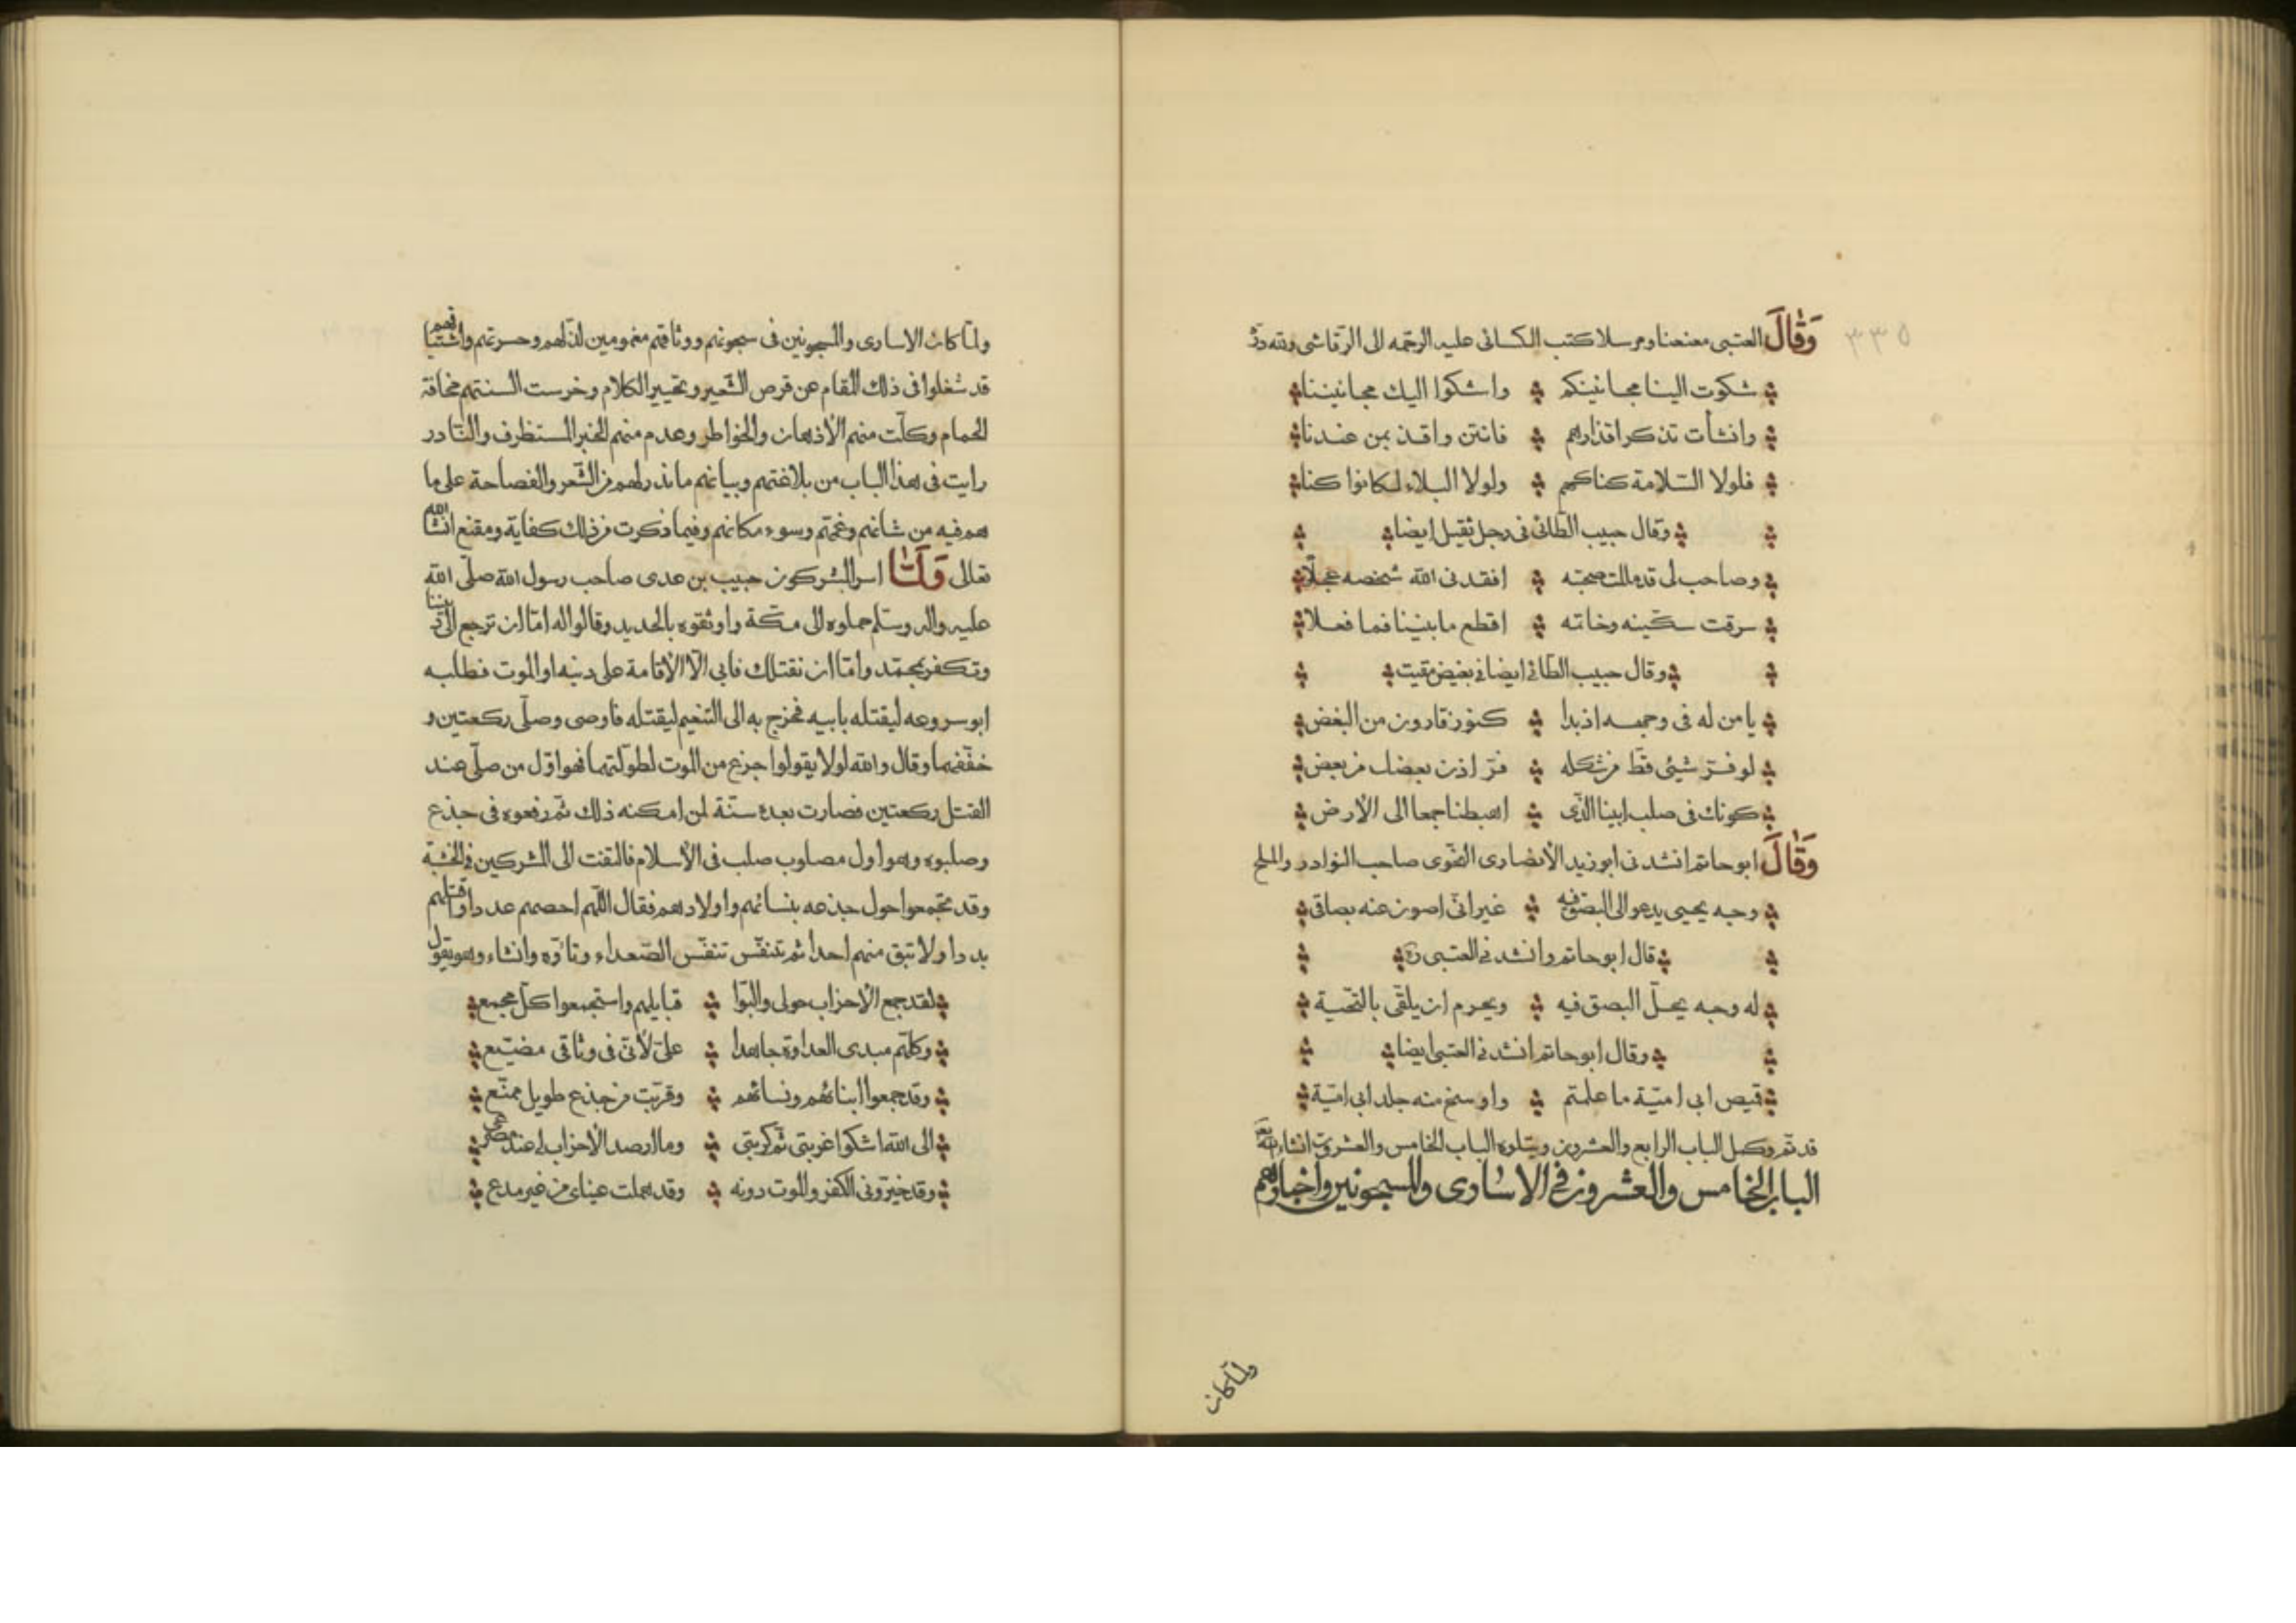 ٣٣٥
وَقَالَ العتبى معنعنا ومرسلا كتب الكسائى عليه الرحمه الى الرقاشى
شكوت الينا مجانينكم واشكوا اليك مجانيننا
وانشأت تذكر اقذارهم فانتن واقذر بمن عندنا
فلولا السّلامة كناكهم ولولا البلاء لكانوا كنا
وقال حبيب الطائى فى رجل ثقيل ايضا
وصاحب لى قد مللت صحبته افقدنى الله شخصه عجلا
سرقت سكّينه وخاتمه اقطع ما بيننا فما فعلا
وقال حبيب الطائى ايضا فى بغيض مقيت
يا من له فى وجهه اذ بدا كنوز قارون من البغض
لو فرّ شيئ قط من شكله فرّ اذن بعضك من بعض
كونك فى صلب ابينا الّذى اهبطنا جمعا الى الأرض
وَقَالَ ابو حاتم انشدنى ابو زيد الأنصارى النحوى صاحب النوادر والملح
وجه يحيى يدعو الى البصق فيه غير انّى اصون عنه بصاقى
قال ابو حاتم وانشدنى العتبى
له وجه يحلّ البصق فيه ويحرم ان يلقّى بالتحيّة
وقال ابو حاتم انشدنى العتبى ايضا
قميص ابى اميّة ما علمتم واوسخ منه جلد ابى اميّة
قد تمّ وكمل الباب الرابع والعشرون ويتلوه الباب الخامس والعشرون انشاء الله
الباب الخامس والعشرون فى الاسارى والمسجونين واخبارهم
ولمّا كان
ولمّا كان الاسارى والمسجونين فى سجونهم ووثاقهم مغمومين لذلهم وحسرتهم واشتياقهم
قد شغلوا فى ذلك المقام عن قرض الشّعر وتحبير الكلام وخرست السنتهم مخافة
الحمام وكلّت منهم الأذهان والخواطر وعدم منهم الخبر المستظرف والنّادر
رايت فى هذا الباب من بلاغتهم وبيانهم ما ندر لهم من الشّعر والفصاحة على ما
هم فيه من شانهم وغمّهم وسوء مكانهم وفيما ذكرت من ذلك كفاية ومقنع انشا الله
تعالى وَلَمّا اسر المشركون حبيب بن عدى صاحب رسول الله صلّى الله
عليه واله وسلّم حملوه الى مكّة واوثقوه بالحديد وقالوا له امّا ان ترجع الى ديننا
وتكفر بمحمّد وامّا ان نقتلك فابى الّا الأقامة على دينه او الموت فطلبه
ابو سروعه ليقتله بابيه فخرج به الى التنعيم ليقتله فاوصى وصلّى ركعتين و
خفّفهما وقال والله لولا يقولوا جزع من الموت لطولتهما فهو اوّل من صلّى عند
القتل ركعتين فصارت بعده سنّة لمن امكنه ذلك ثمّ رفعوه فى جذع
وصلبوه وهو اول مصلوب صلب فى الأسلام فالتفت الى المشركين فى الخشبة
وقد تجمعوا حول جذعه بنسائهم واولادهم فقال اللّهم احصهم عددا واقتلهم
بددا ولا تبق منهم احدا ثم تنفّس تنفّس الصّعداء وتاوّه وانشاء وهو يقول
لقد جمع الأحزاب حولى والبوا قبايلهم واستجمعوا كلّ مجمع
وكلّهم مبدى العداوة جاهدا علىّ لأنّى فى وثاقى مضيّع
وقد جمعوا ابنائهم ونسائهم وقرّبت من جذع طويل ممنّع
الى الله اشكوا غربتى ثمّ كربتى وما ارصد الأحزاب لى عند مصرعى
وقد خيّرونى الكفر والموت دونه وقد هملت عيناى من غير مدمع